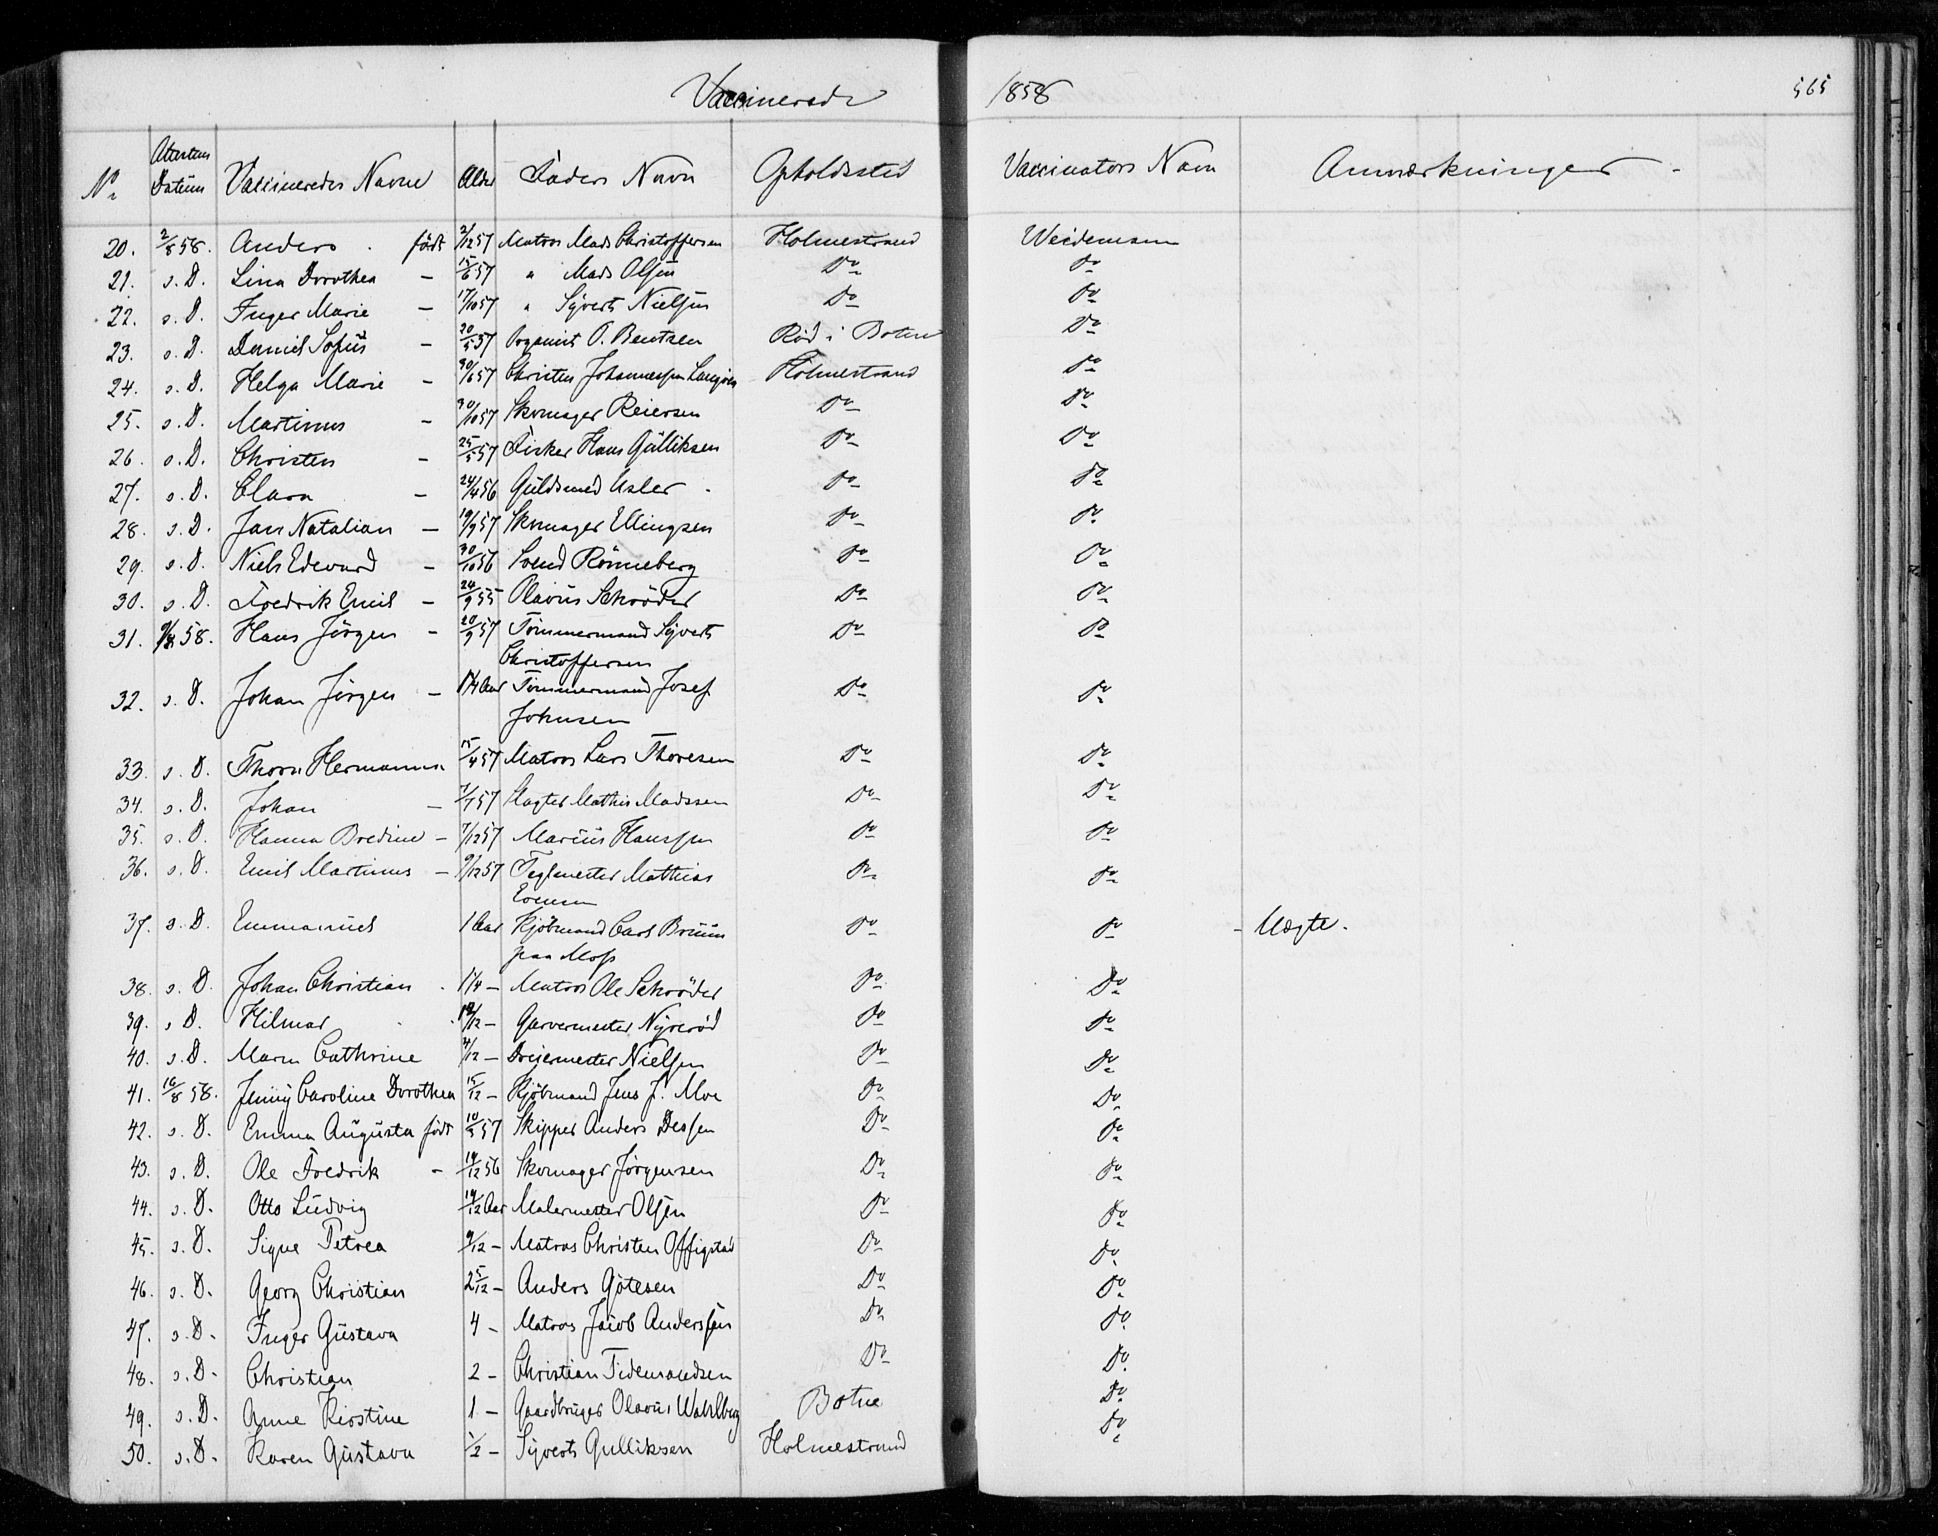 Vaccinerede 1858 565
No. Attestens Datum Vaccineredes Navne Alder Faders Navn Opholdssted Vaccinators Navn Anmærkninger
20. 2/8 58. Anders født 2/12 57 Matros Mads Christoffersen Holmestrand Weidemann
21. s. D. Lina Dorothea - 15/6 57 " Mads Olsen Do Do
22. s. D. Inger Marie - 17/10 57 " Syvert Nielsen Do Do
23. s. D. Daniel Sofus - 20/5 57 Organist O. Bentzen Rød i Botne Do
24. s. D. Helga Marie - 30/6 57 Christen Johannessen Holmestrand Do
25. s. D. Martinus - 30/10 57 Skomager Reiersen Do Do
26. s. D. Christen - 25/5 57 Fisker Hans Gulliksen Do Do
27. s. D. Clara - 24/4 56 Guldsmed Asler Do Do
28. s. D. Jan Natalian - 19/9 57 Skomager Ellingsen Do Do
29. s. D. Niels Edevard - 30/10 56 Svend Rönneberg Do Do
30. s. D. Fredrik Emil - 24/9 55 Olavus Schrøder Do Do
31. 9/8 58. Hans Jörgen - 20/9 57 Tømmermand Syvert Do Do
Christoffersen
32. s. D. Johan Jörgen - 1 1/4 Aar Tømmermand Josef Do Do
Johnsen
33. s. D. Thora Hermanna 15/4 57 Matros Lars Thoresen Do Do
34. s. D. Johan - 7/7 57 Slagter Mathis Madssen Do Do
35. s. D. Hanna Bredine - 7/12 57 Marcus Hanssen Do Do
36. s. D. Emil Martinus - 9/12 57 Teglmester Mathias Do Do
Evensen
37. s. D. Emmanuel 1 Aar Kjöbmand Carl Bruun Do Do - Uægte.
paa Moss
38. s. D. Johan Christian 1 1/4 - Matros Ole Schrøder Do Do
39. s D. Hilmar /12 - Garvermester Nyrerød Do Do
40. s. D. Maren Cathrine /12 - Dreiermester Nielsen Do Do
41. 16/8 58. Jenny Caroline Dorothea 15/12 - Kjöbmand Jens J. Moe Do Do
42. s. D. Emma Augusta født 10/2 57 Skipper Anders Dessen Do Do
43. s. D. Ole Fredrik - 14/12 56 Skomager Jørgensen Do Do
44. s. D. Otto Ludvig 14/12 Aar Malermester Olsen Do Do
45. s. D. Signe Petrea 9/12 - Matros Christen Offigstad Do Do
46. s. D. Georg Christian 2 5/12 - Anders Götesen Do Do
47. s. D. Inger Gustava 4 - Matros Jacob Anderssen Do Do
48. s. D. Christian 2 - Christian Tidemandsen Do Do
49. s. D. Anne Kirstine 1 - Gaardbruger Olavus Wahlberg Botne Do
50. s. D. Karen Gustava 1/2 - Syvert Gulliksen Holmestrand Do